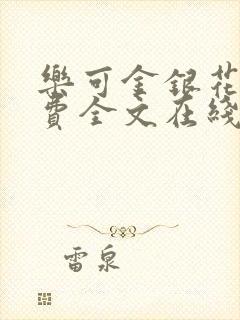 樂可金銀花
費全文在綫
雷泉